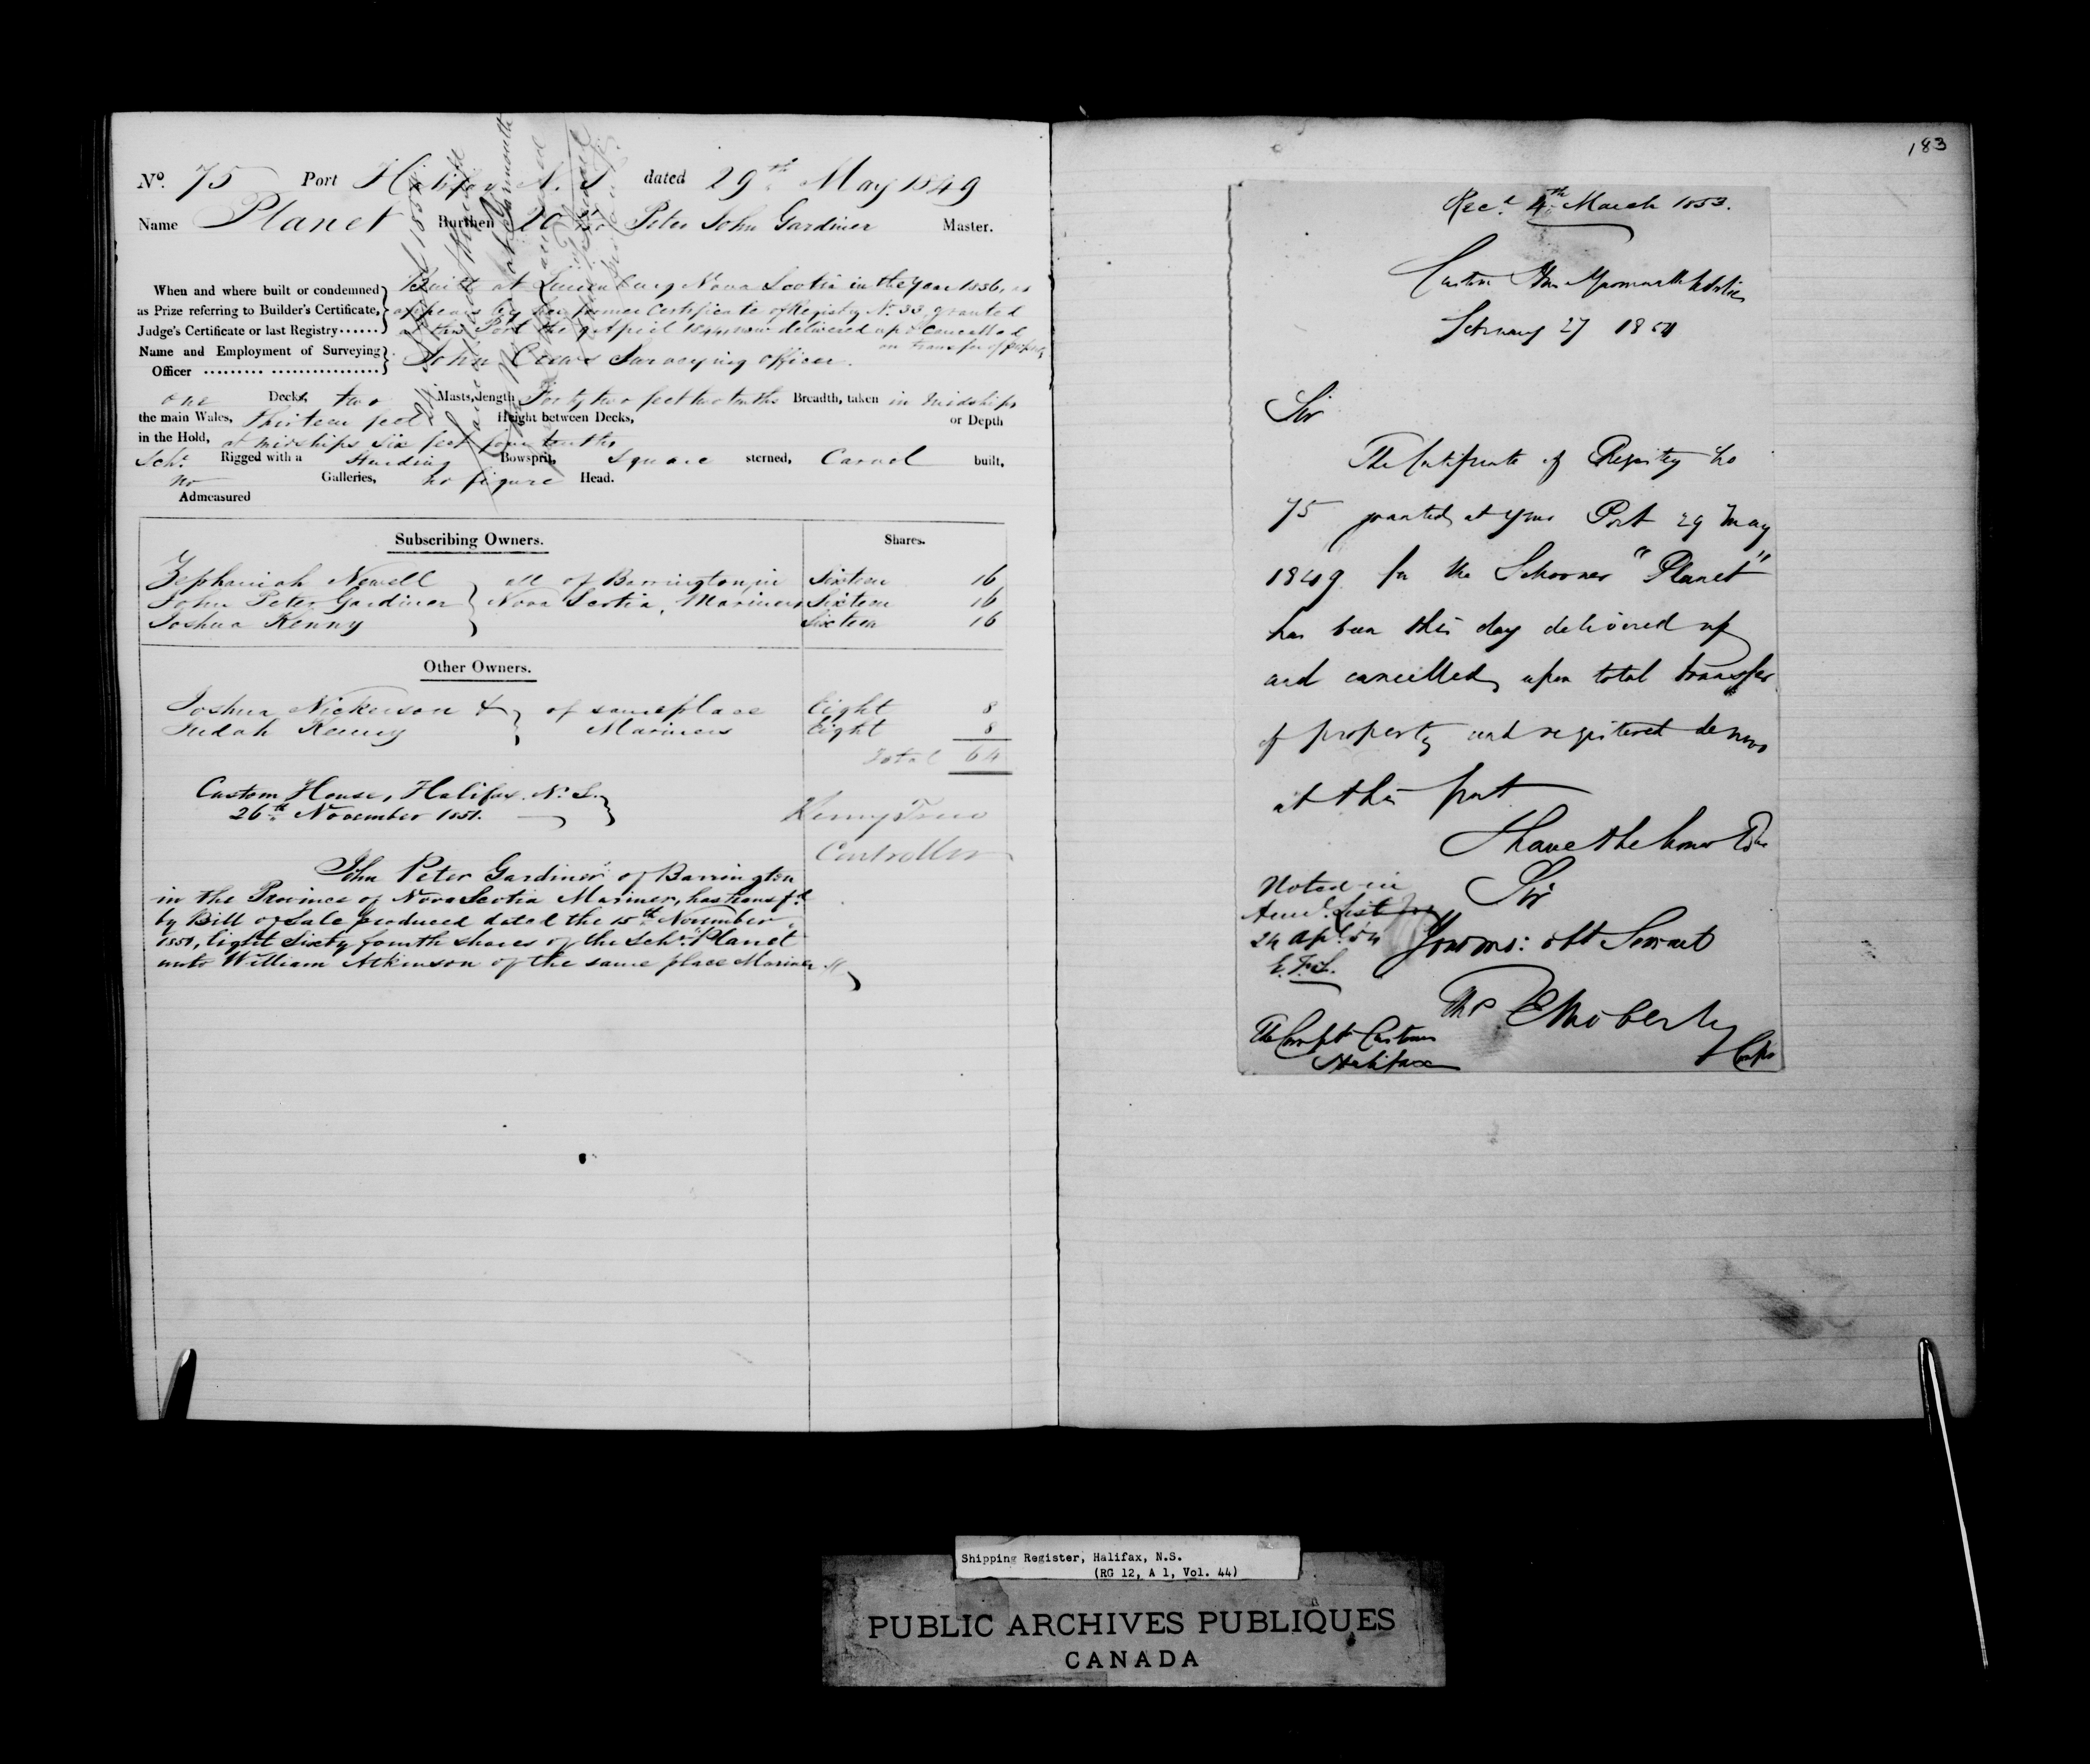 No. 75 Port Halifax N. S. dated 29th May 1849
Name Planet Burthen 20 Peter John Gardiner Master.
When and where built or condemned
as Prize referring to Builder's Certificate,
Judge's Certificate or last Registry
Built at Lunenburg Nova Scotia in the year 1836, as
appears by her former Certificate of Registry No. 33 granted
at this Port the 9 April 1844 now delivered up & Cancelled
on transfer of property
Name and Employment of Surveying
Officer
John Surveying Officer.
one Decks, two Masts, length Forty two feet two tenths Breadth, taken in midships
the main Wales, thirteen feet Height between Decks, or Depth
in the Hold, at midships six feet four tenths
Schr. Rigged with a Standing Bowsprit, square sterned, Carvel built,
no Galleries, no figure Head.
Admeasured
Subscribing Owners. Shares.
Zephaniah Newell all of Barrington, in Sixteen 16
John Peter Gardiner Nova Scotia, Mariners Sixteen 16
Joshua Kenny Sixteen 16
Other Owners.
Joshua Nickerson & of same place Eight 8
Judah Kenny Mariners Eight 8
Total 64
Custom House, Halifax. N. S.
26th November 1851.
Controller
John Peter Gardiner of Barrington
in the Province of Nova Scotia Mariner, has transfd.
by Bill of Sale produced dated the 15th November
1851, Eight Sixty fourth shares of the Schr. "Planet"
unto William Atkinson of the same place Mariner
183
Recd. 4th March 1853.
Custom Hse Yarmouth
February 27 1854
Sir
The Certificate of Registry No
75 granted at your Port 29 May
1849 for the Schooner "Planet"
has been this day delivered up
and cancelled upon total transfer
of property and registered de novo
at this port
I have the honor to be
Sir
Your mo: obt Servant
Noted in
List
24 Apl. 54
The Compt. Customs
Halifax
Shipping Register, Halifax, N.S.
(RG 12, A 1, Vol. 44)
PUBLIC ARCHIVES PUBLIQUES
CANADA